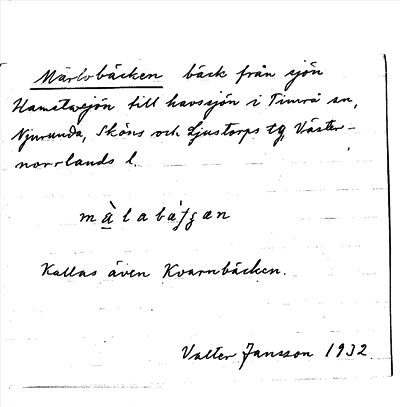 Märlobäcken bäck från sjön
till havssjön i Timrå sn,
Njurunda, Sköns och Ljustorps tg, Väster-
norrlands l.
Kallas även Kvarnbäcken.
Valter Jansson 1932